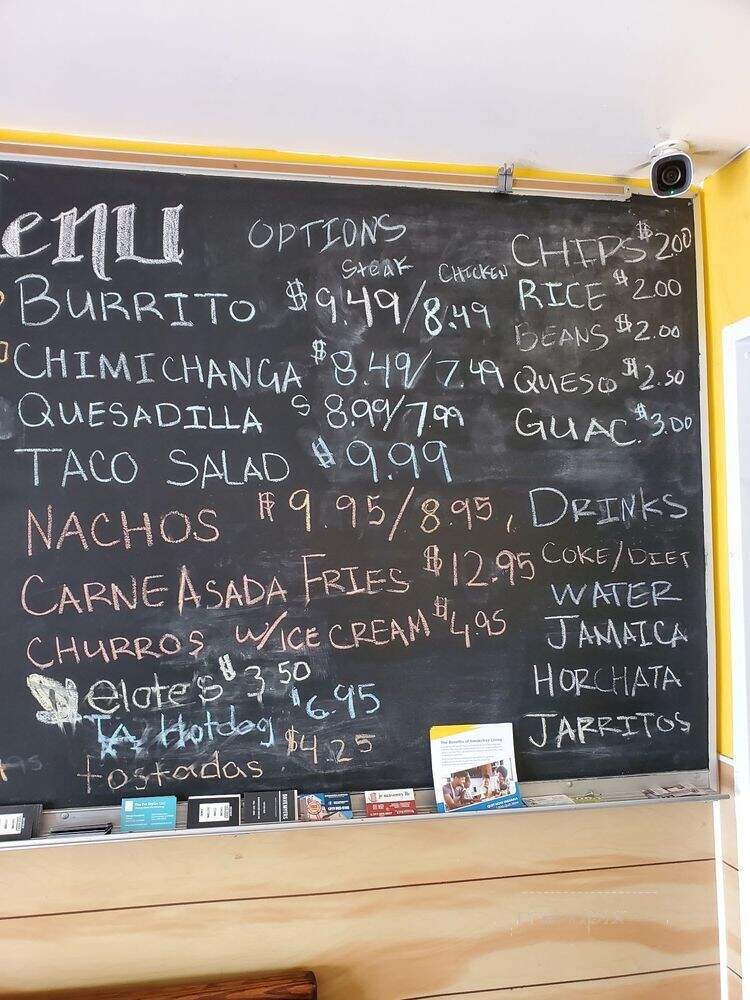 enu
OPTIONS
Steak CHICKEN
BURRITO $9.49/8.49
CHIMICHANGA $8.49/7.49
QUESADILLA $8.99/7.99
TACO SALAD $9.99
NACHOS $9.95/8.95,
CARNE ASADA FRIES $12.95
CHURROS W/ICE CREAM $4.95
elote's $3.50
Hotdog $6.95
tostadas $4.25
CHIPS $2.00
RICE $2.00
BEANS $2.00
QUESO $2.50
GUAC. $3.00
DRINKS
COKE/DIET
WATER
JAMAICA
HORCHATA
JARRITOS
The Benefits of Smoke-free Living